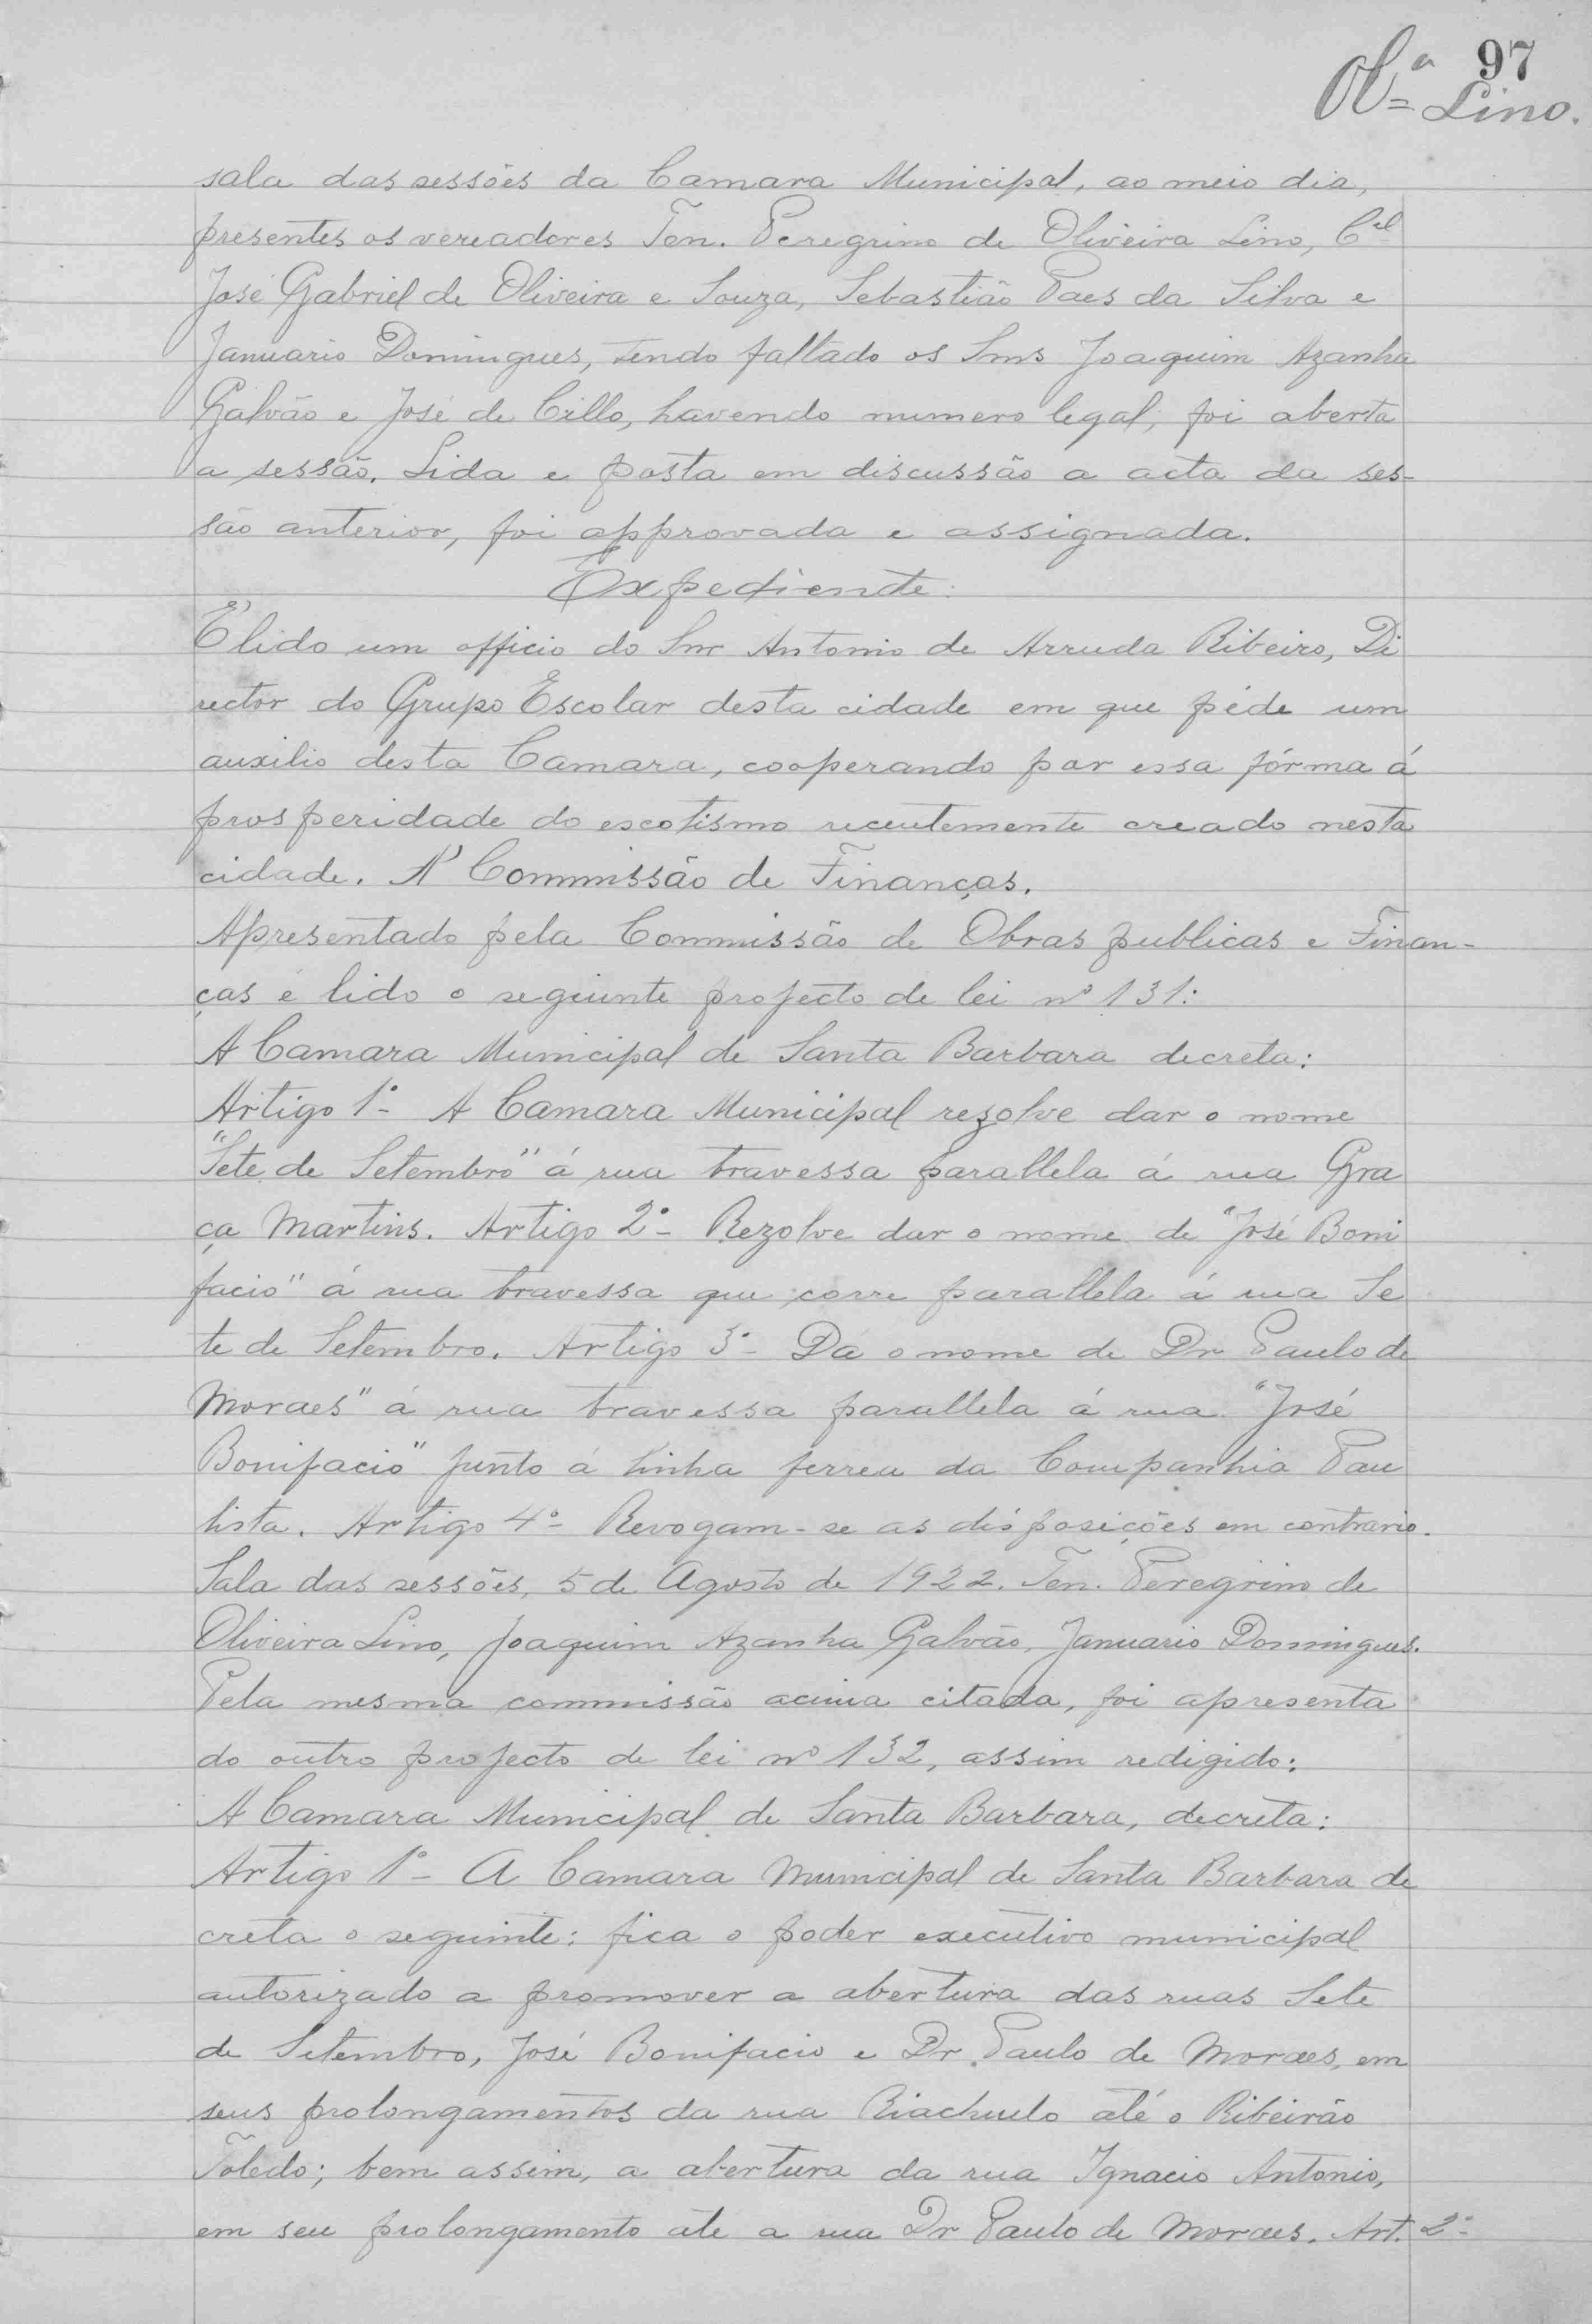 97
Olª Lino.
sala das sessões da Camara Municipal, ao meio dia,
presentes os vereadores Ten. Peregrino de Oliveira Lino, Cel
José Gabriel de Oliveira e Souza, Sebastião Paes da Silva e
Januario Domingues, tendo faltado os Snrs Joaquim Azanha
Galvão e José de Cillo, havendo numero legal, foi aberta
a sessão. Lida e posta em discussão a acta da ses-
são anterior, foi approvada e assignada.
Expediente:
É lido um officio do Snr Antonio de Arruda Ribeiro, Di
rector do Grupo Escolar desta cidade em que péde um
auxilio desta Camara, cooperando por essa fórma á
prosperidade do escotismo recentemente creado nesta
cidade. A' Commissão de Finanças.
Apresentado pela Commissão de Obras publicas e Finan-
ças é lido o seguinte projecto de lei nº 131:
A Camara Municipal de Santa Barbara decreta:
Artigo 1º- A Camara Municipal rezolve dar o nome
"Sete de Setembro" á rua travessa parallela á rua Gra
ça Martins. Artigo 2º- Rezolve dar o nome de "José Boni
facio" á rua travessa que corre parallela á rua Se
te de Setembro. Artigo 3º- Dá o nome de Dr Paulo de
Moraes" á rua travessa parallela á rua "José
Bonifacio" junto á linha ferrea da Companhia Pau
lista. Artigo 4º- Revogam-se as disposições em contrario.
Sala das sessões, 5 de Agosto de 1922. Ten. Peregrino de
Oliveira Lino, Joaquim Azanha Galvão, Januario Domingues.
Pela mesma commissão acima citada, foi apresenta
do outro projecto de lei nº 132, assim redigido:
A Camara Municipal de Santa Barbara, decreta:
Artigo 1º- A Camara Municipal de Santa Barbara de
creta o seguinte: fica o poder executivo municipal
autorizado a promover a abertura das ruas Sete
de Setembro, José Bonifacio e Dr Paulo de Moraes, em
seus prolongamentos da rua Riachuelo até o Ribeirão
Toledo; bem assim, a abertura da rua Ignacio Antonio,
em seu prolongamento até a rua Dr Paulo de Moraes. Art. 2º-